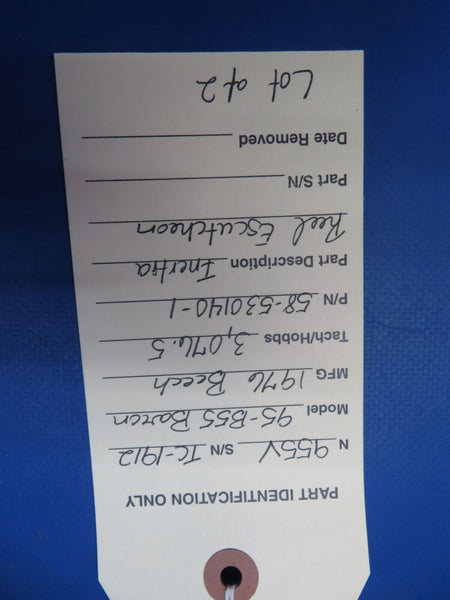 PART IDENTIFICATION ONLY
N 955V S/N TC-1912
Model 95-B55 Baron
MFG 1976 Beech
Tach/Hobbs 3,076.5
P/N 58-530140-1
Part Description Inertia
Reel Escutcheon
Part S/N
Date Removed
Lot of 2